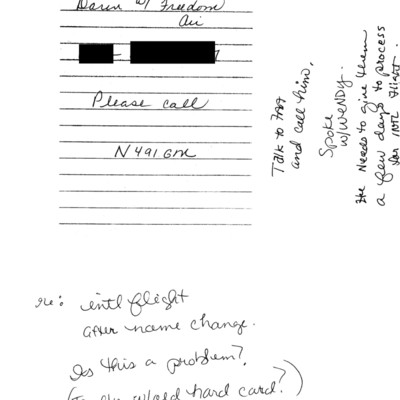 Darin w/ Freedom
Air
Please call
N491GM
Talk to
and call him.
Spoke
w/ WENDY.
He Needs to give them
a few days to process
for INTL flight.
re: intl flight
after name change.
Is this a problem?
hard card?)